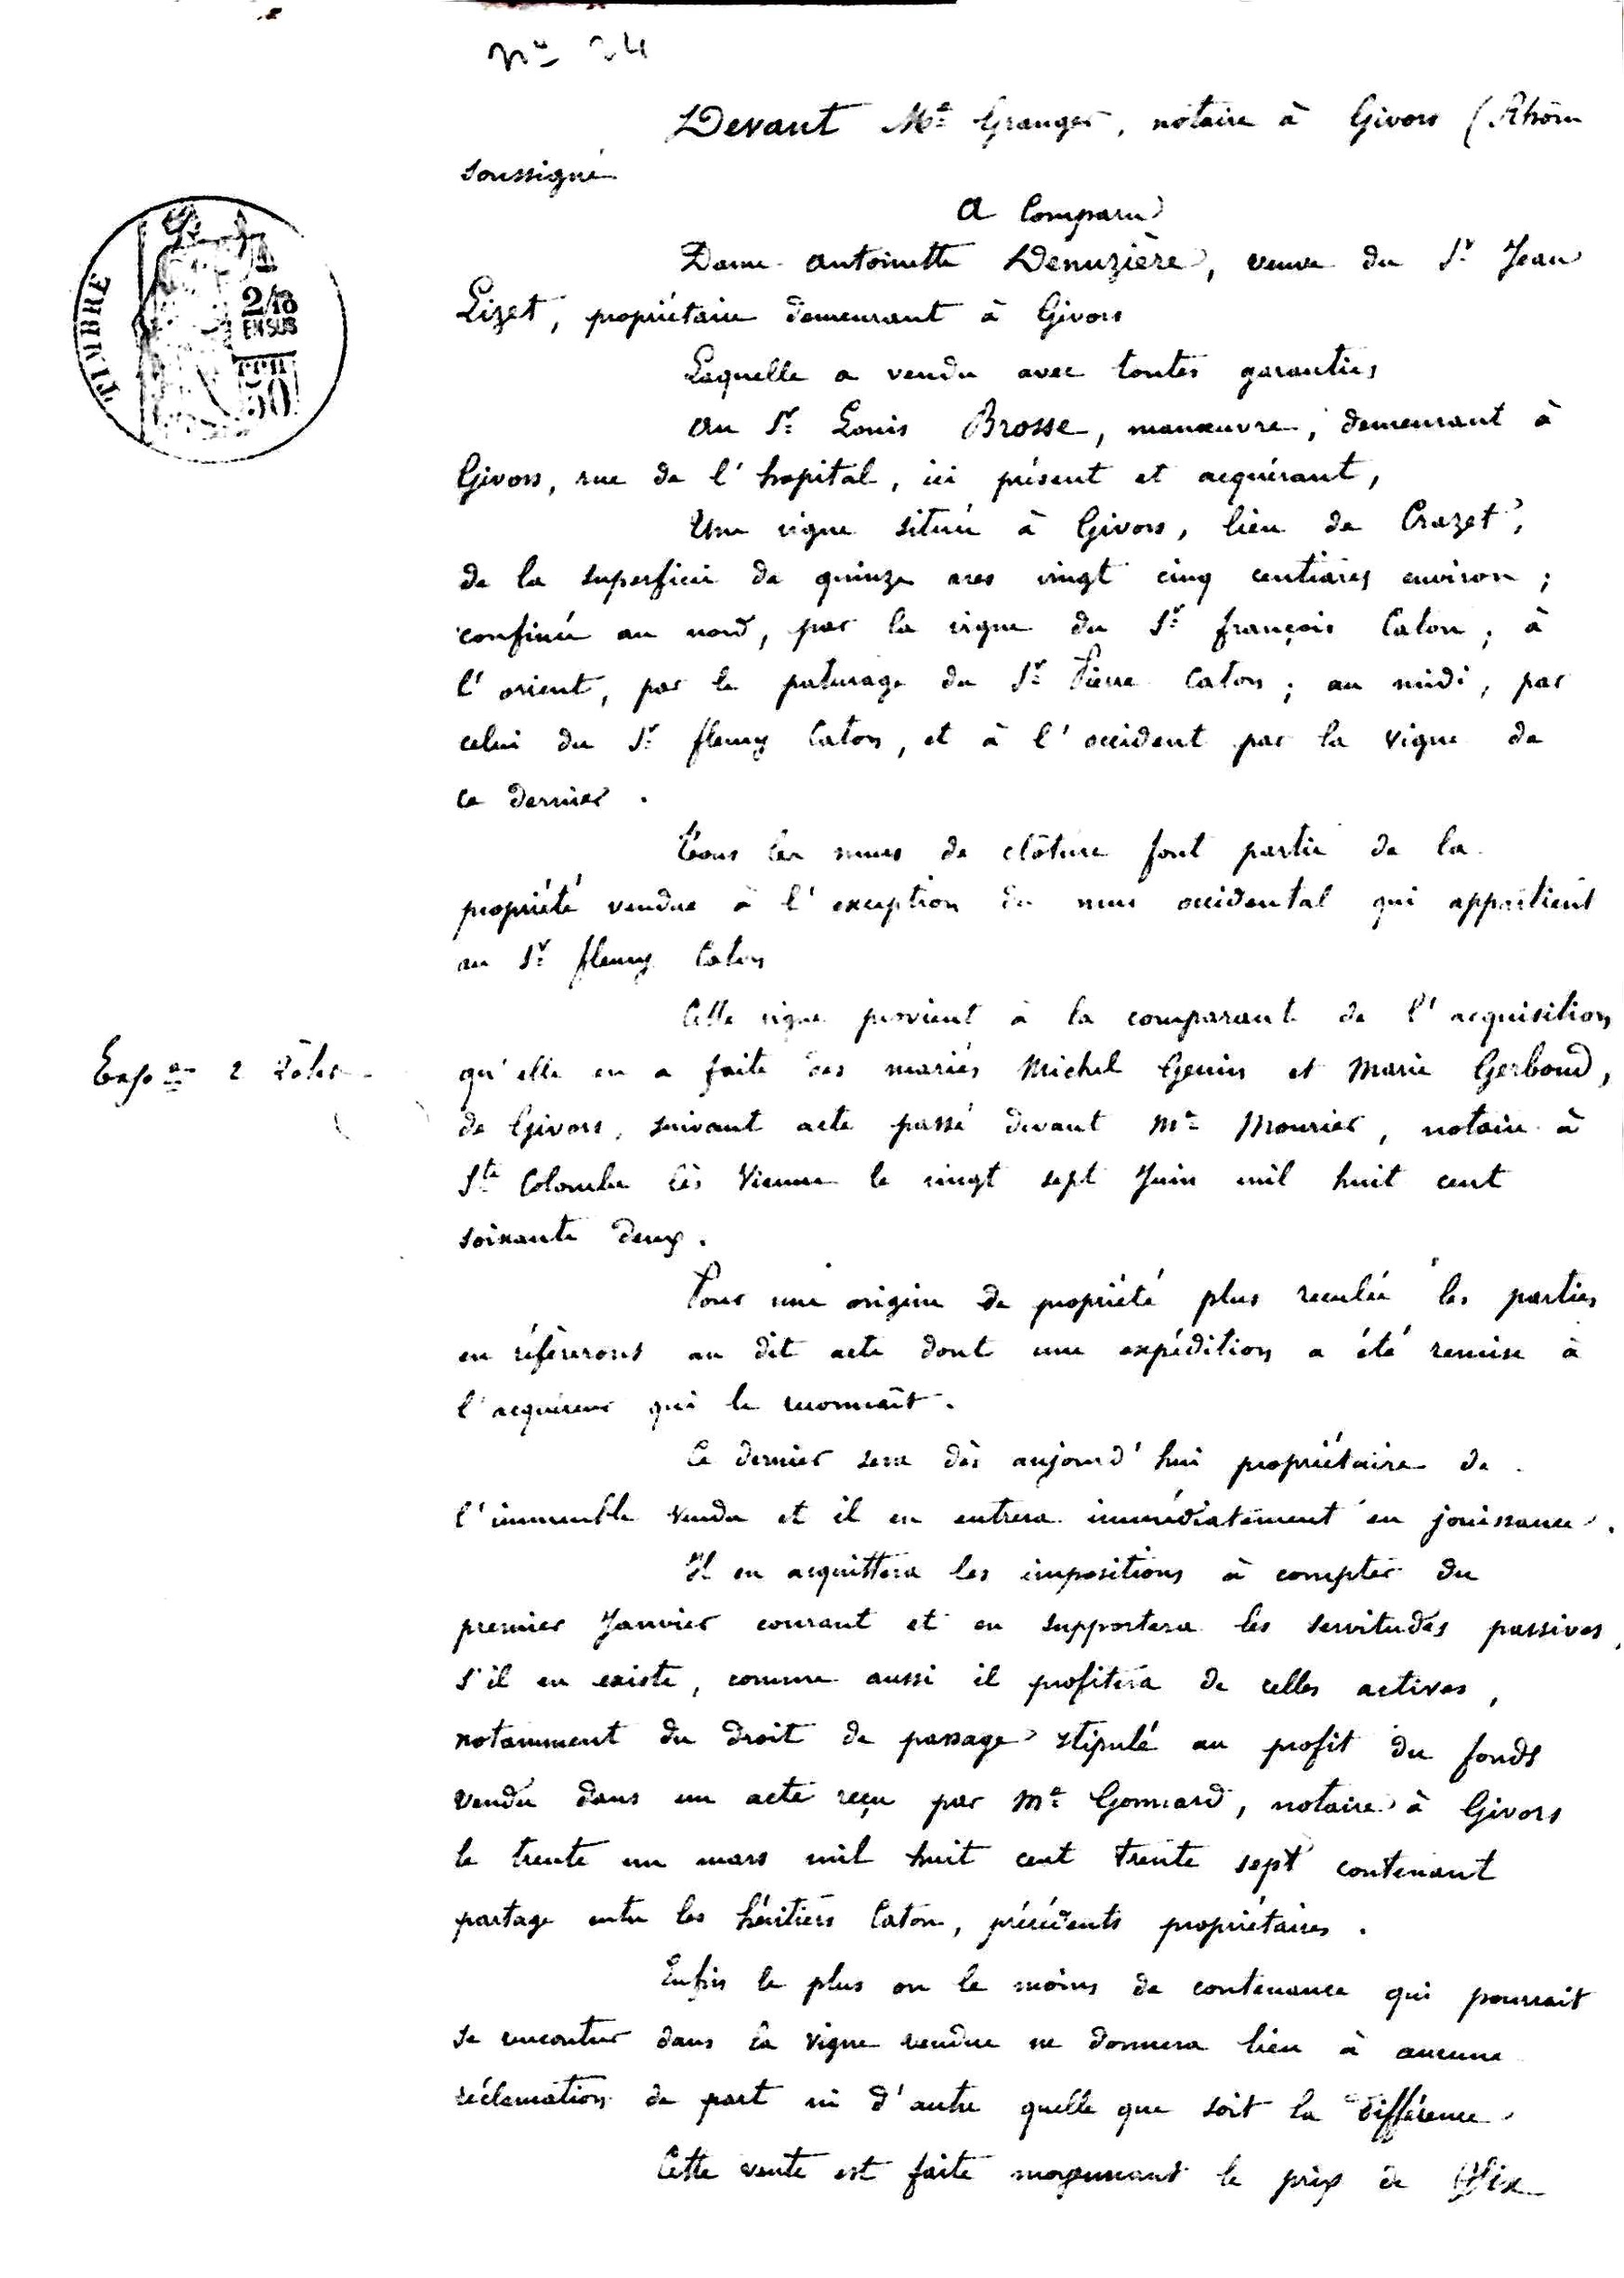 Nº 24
Devant Mᵉ Granger, notaire à Givors (Rhône
soussigné
A Comparu
Dame Antoinette Denuzière, veuve du Sʳ Jean
Lizet, propriétaire demeurant à Givors
Laquelle a vendu avec toutes garanties
au Sʳ Louis Brosse, manœuvre, demeurant à
Givors, rue de l'hopital, ici présent et acquérant,
Une vigne située à Givors, lieu de Crazet,
de la superficie de quinze ares vingt cinq centiares environ ;
confinée au nord, par la vigne du Sʳ françois Caton ; à
l'orient, par le paturage du Sʳ Pierre Caton ; au midi, par
celui du Sʳ fleury Caton, et à l'occident par la vigne de
ce dernier.
Tous les murs de clôture font partie de la
propriété vendue à l'exception du mur occidental qui appartient
au Sʳ fleury Caton
Cette vigne provient à la comparante de l'acquisition
qu'elle en a faite des mariés Michel Genin et Marie Gerboud,
de Givors, suivant acte passé devant Mᵉ Mourier, notaire à
Sᵗᵉ Colombe lès Vienne le vingt sept Juin mil huit cent
soixante deux.
Expᵒⁿ 2 rôles
Pour une origine de propriété plus reculée les parties
en référerons au dit acte dont une expédition a été remise à
l'acquéreur qui le reconnaît.
Ce dernier sera dès aujourd'hui propriétaire de
l'immeuble vendu et il en entrera immédiatement en jouissance.
Il en acquittera les impositions à compter du
premier Janvier courant et en supportera les servitudes passives,
s'il en existe, comme aussi il profitera de celles actives,
notamment du droit de passage stipulé au profit du fonds
vendu dans un acte reçu par Mᵉ Gonnard, notaire à Givors
le trente un mars mil huit cent trente sept contenant
partage entre les héritiers Caton, précédents propriétaires.
Enfin le plus ou le moins de contenance qui pourrait
se rencontrer dans la vigne vendue ne donnera lieu à aucune
réclamation de part ni d'autre quelle que soit la différence.
Cette vente est faite moyennant le prix de Dix
TIMBRE
2/10
EN SUS
50